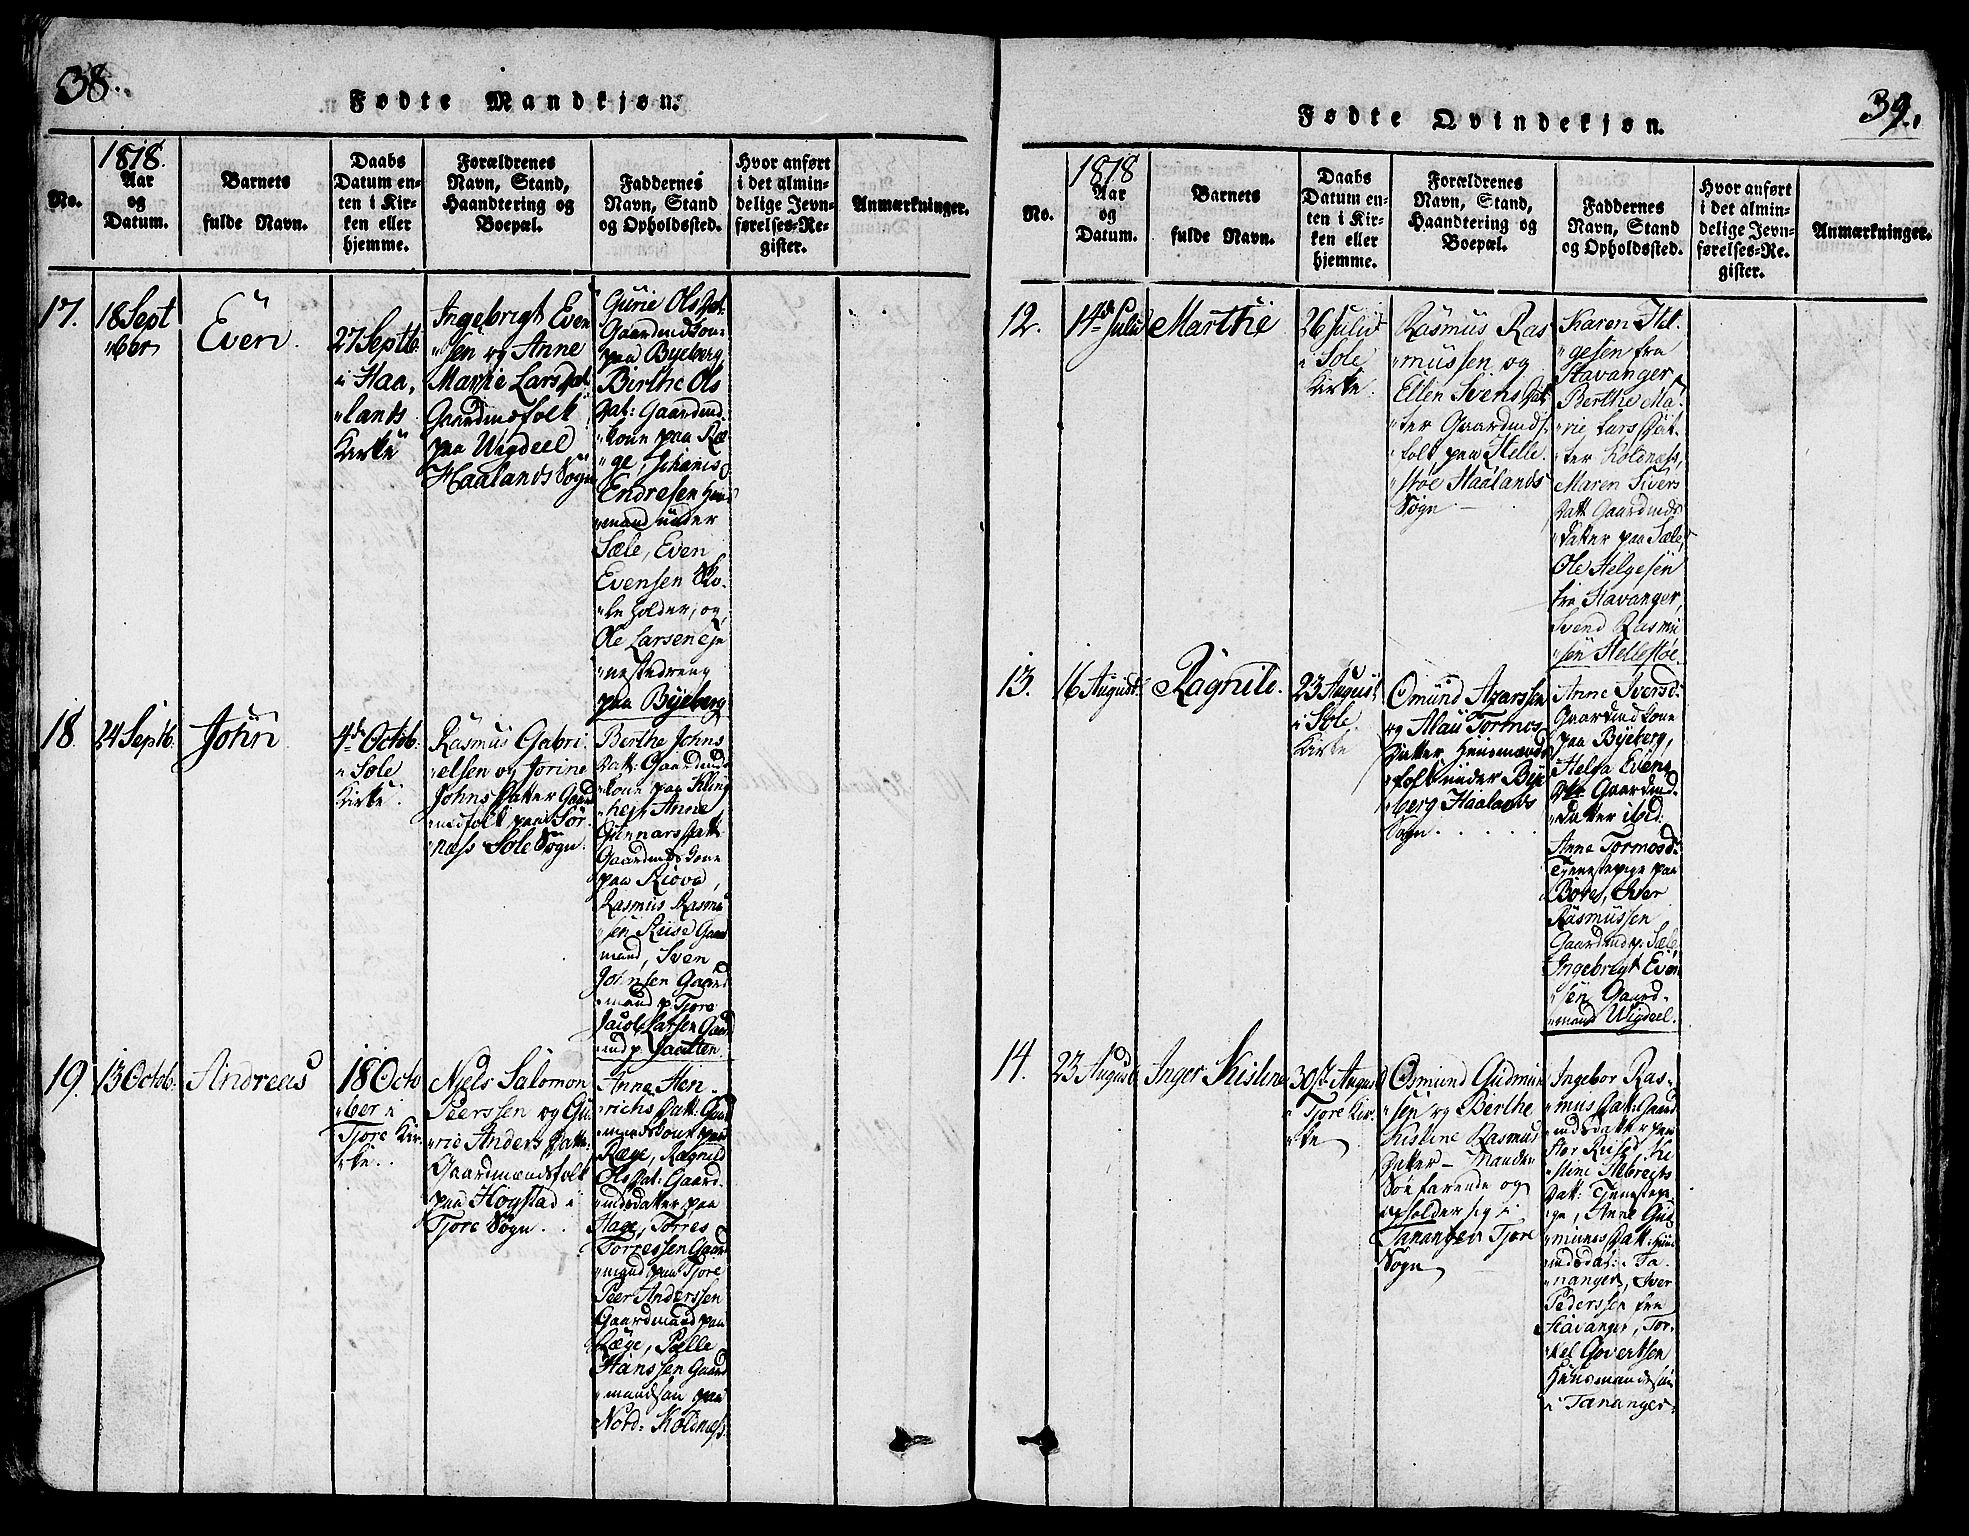 38.
Fødte Mandkjøn.
No.
1818.
Aar
og
Datum.
Barnets
fulde Navn.
Daabs
Datum en-
ten i Kir-
ken eller
hjemme.
Forældrenes
Navn, Stand,
Haandtering og
Boepæl.
Faddernes
Navn, Stand
og Opholdssted.
Hvor anført
i det almin-
delige Jevn-
førelses-Re-
gister.
Anmærkninger.
17.
18 Sept
"ber
Even.
27 Septb.
i Haa,
"lands
Kirke
Ingebrigt Even
"sen og Anne
Marie Lars Dat
Gaardmdsfolk
paa Wigdeel
Haalands Sogn
Gurie Ols Dat.
Gaardmdskon-
paa Byeberg,
Birthe Ols
Dat: Gaardmd.
"kone paa Ræ
"ge, Johanis
Endresen Huus
"mand under
Sæle, Even
Evensen
"holder, og
Ole Larsen Tje
"nestedreng
paa Byeberg
18.
24 Septb.
John
4de Octob.
i Sole
Kirke.
Rasmus Gabri
"elsen og Jorine
Johns Datter Gaard
"mdfolk paa Sør
næss Sole Sogn.
Berthe Johns
Dat: Gaardmds
"kone paa
Anne
Gunnars Datt.
Gaardmdskone
paa
Rasmus Rasmu
"sen Riise Gaard
mand, Sven
Johnsen Gaard
"mand p. Tjore
Jacob Larsen Gaard
md p. Jaatten.
19.
13 Octob.
Andreas
18 Octo
"ber i
Tjore Kir
"ke.
Niels Salomon
Peerssen og Gu
"rie Anders Datter
Gaardmændsfolk
paa Hogstad i
Tjore Sogn.
Anne Hen-
"richs Datt: Gaard
mandskone paa
Ræge, Ragnild
Ols Dat: Gaard-
"mdsdatter paa
Hage, Torres
Torressen Gaard
"mand paa Tjore
Peer Anderssen
Gaardmand paa
Ræge, Palle
Hanssen Gaard
"mandsøn paa
Nord. Kolnæss.
39.
Fødte Qvindekjøn.
No.
1818
Aar
og
Datum.
Barnets
fulde Navn.
Daabs
Datum en-
ten i Kir-
ken eller
hjemme.
Forældrenes
Navn, Stand,
Haandtering og
Boepæl.
Faddernes
Navn, Stand
og Opholdssted.
Hvor anført
i det almin-
delige Jevn-
førelses-Re-
gister.
Anmærkninger.
12.
14de Julii
Marthe
26 Julii
i Sole
Kirke.
Rasmus Ras
"mussen og
Ellen Svens Dat
"ter Gaardmds
"folk paa Helle
"støe Haalands
Sogn.
Karen Hel-
"gesen fra
Stavanger,
Berthe Ma-
"rie Lars Dat-
"ter Kolnæss,
Maren Sivers
Datt. Gaardmds
"datter paa Sæle,
Ole Helgesen
fra Stavanger,
Svend Rasmu
"sen Hellestøe.
13.
16 August.
Ragnile.
23 August
i Sole
Kirke
Omund Azarssen
og Mali Tormos
Datter Huusmænds
"folk under Bye
"berg Haalands
Sogn.
Anne Iversd:
Gaardmdkone
paa Byeberg,
Helga Evens
Dtr Gaardmd.
"datter ibid.
Anne Tormosd:
Tjenestepige paa
Bore, Iver
Rasmussen
Gaardmd p. Sæle
Ingebregt Even
"sen Gaard-
"mand Wigdeel.
14.
23 August
Inger Kistine
30te August
i Tjore Kir-
"ke
Osmund Gudmun
"sen og Berthe
Kistine Rasmus
Datter - Manden
Søefarende og
opholder sig i
Tananger Tjore
Sogn
Ingebor Ras-
"mus Datt: Gaard
"mdsdatter paa
Stor Ki
"stine
Datt: Tjenestepi
"ge, Anne Gud
"munds Datt: Huus
"mdsdat: i Ta-
"nanger, Iver
Pederssen fra
Stavanger, Tor-
"kel Govertsen
Huusmandssøn
i Tananger.